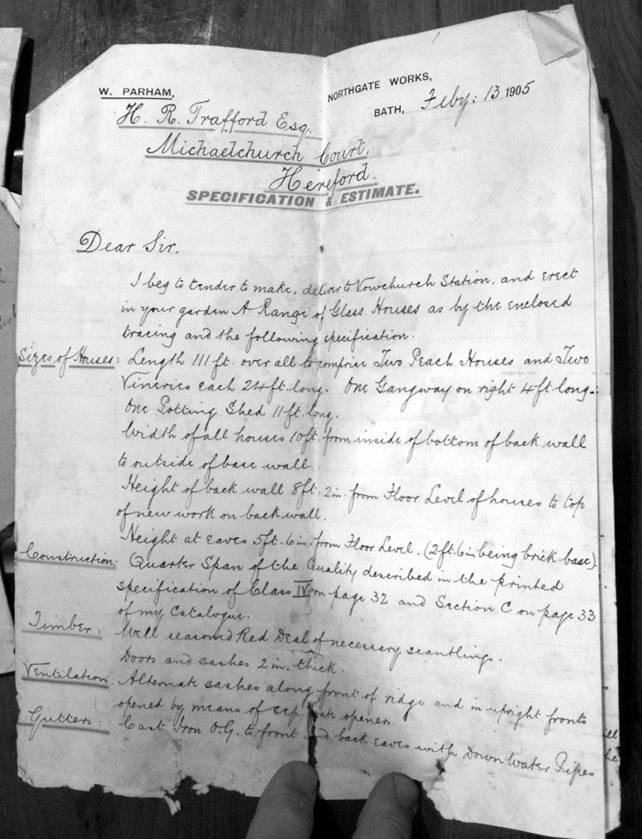 W. PARHAM,
NORTHGATE WORKS,
BATH, Feby: 13 1905
H. R. Trafford Esq.
Michaelchurch Court,
Hereford.
SPECIFICATION & ESTIMATE.
Dear Sir.
I beg to tender to make, deliver to Vowchurch Station, and erect
in your garden A Range of Glass Houses as by the enclosed
tracing and the following specification.
Sizes of Houses: Length 111 ft. over all to comprise Two Peach Houses and Two
Vineries each 24 ft. long. One Gangway on right 4 ft. long.
One Potting Shed 11 ft. long.
Width of all houses 10 ft. from inside of bottom of back wall
to outside of base wall.
Height of back wall 8 ft. 2 in. from Floor Level of houses to top
of new work on back wall.
Height at Eaves 5 ft. 6 in. from Floor Level. (2 ft. 6 in being brick base)
Construction: Quarter Span of the Quality described in the printed
specification of Class IV on page 32 and Section C on page 33
of my Catalogue.
Timber: Well seasoned Red Deal of necessary scantling.
Doors and sashes 2 in. thick.
Ventilation: Alternate sashes along front of ridge and in upright fronts
opened by means of opener.
Gutters: Cast Iron O.G. to front and back eaves with Down Water Pipes